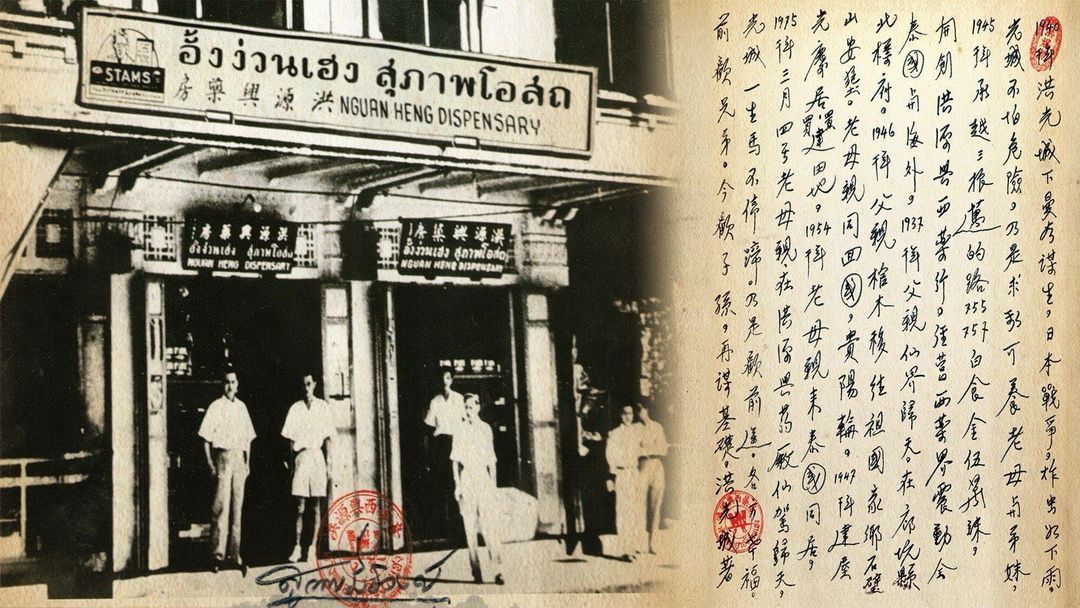 STAMS
อั้งง่วนเฮง สุภาพโอสถ
洪源興藥房 NGUAN HENG DISPENSARY
洪源興藥房
อั้งง่วนเฮง สุภาพโอสถ
NGUAN HENG DISPENSARY
洪源興藥房
อั้งง่วนเฮง สุภาพโอสถ
NGUAN HENG DISPENSARY
1940年洪光城下曼谷謀生，日本戰爭，炸虫如下雨。
光城不怕危險，乃是求利可養老母与弟妹，
1945年承越三振 的路755 757 金伍萬銖。
同創洪源興西藥行。經營西藥界震動全
泰國与海外，1937年父親仙界歸天在 坑縣
北標府。1946年父親棺木移往祖國家鄉石壁
山安葬。老母親同回國，貴陽輪。1947年建屋
光廬居置建田地，1954年老母親来泰國同居。
1975年三月四号老母親在洪源興葯廠仙駕歸天，
光城一生馬不停蹄。乃是歡前 。各 幸福。
前歡兄弟。今歡子孫，再謀基礎。洪光城著